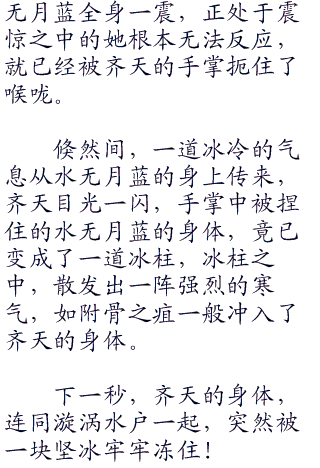 无月蓝全身一震，正处于震
惊之中的她根本无法反应，
就已经被齐天的手掌扼住了
喉咙。
倏然间，一道冰冷的气
息从水无月蓝的身上传来，
齐天目光一闪，手掌中被捏
住的水无月蓝的身体，竟已
变成了一道冰柱，冰柱之
中，散发出一阵强烈的寒
气，如附骨之疽一般冲入了
齐天的身体。
下一秒，齐天的身体，
连同漩涡水户一起，突然被
一块坚冰牢牢冻住！